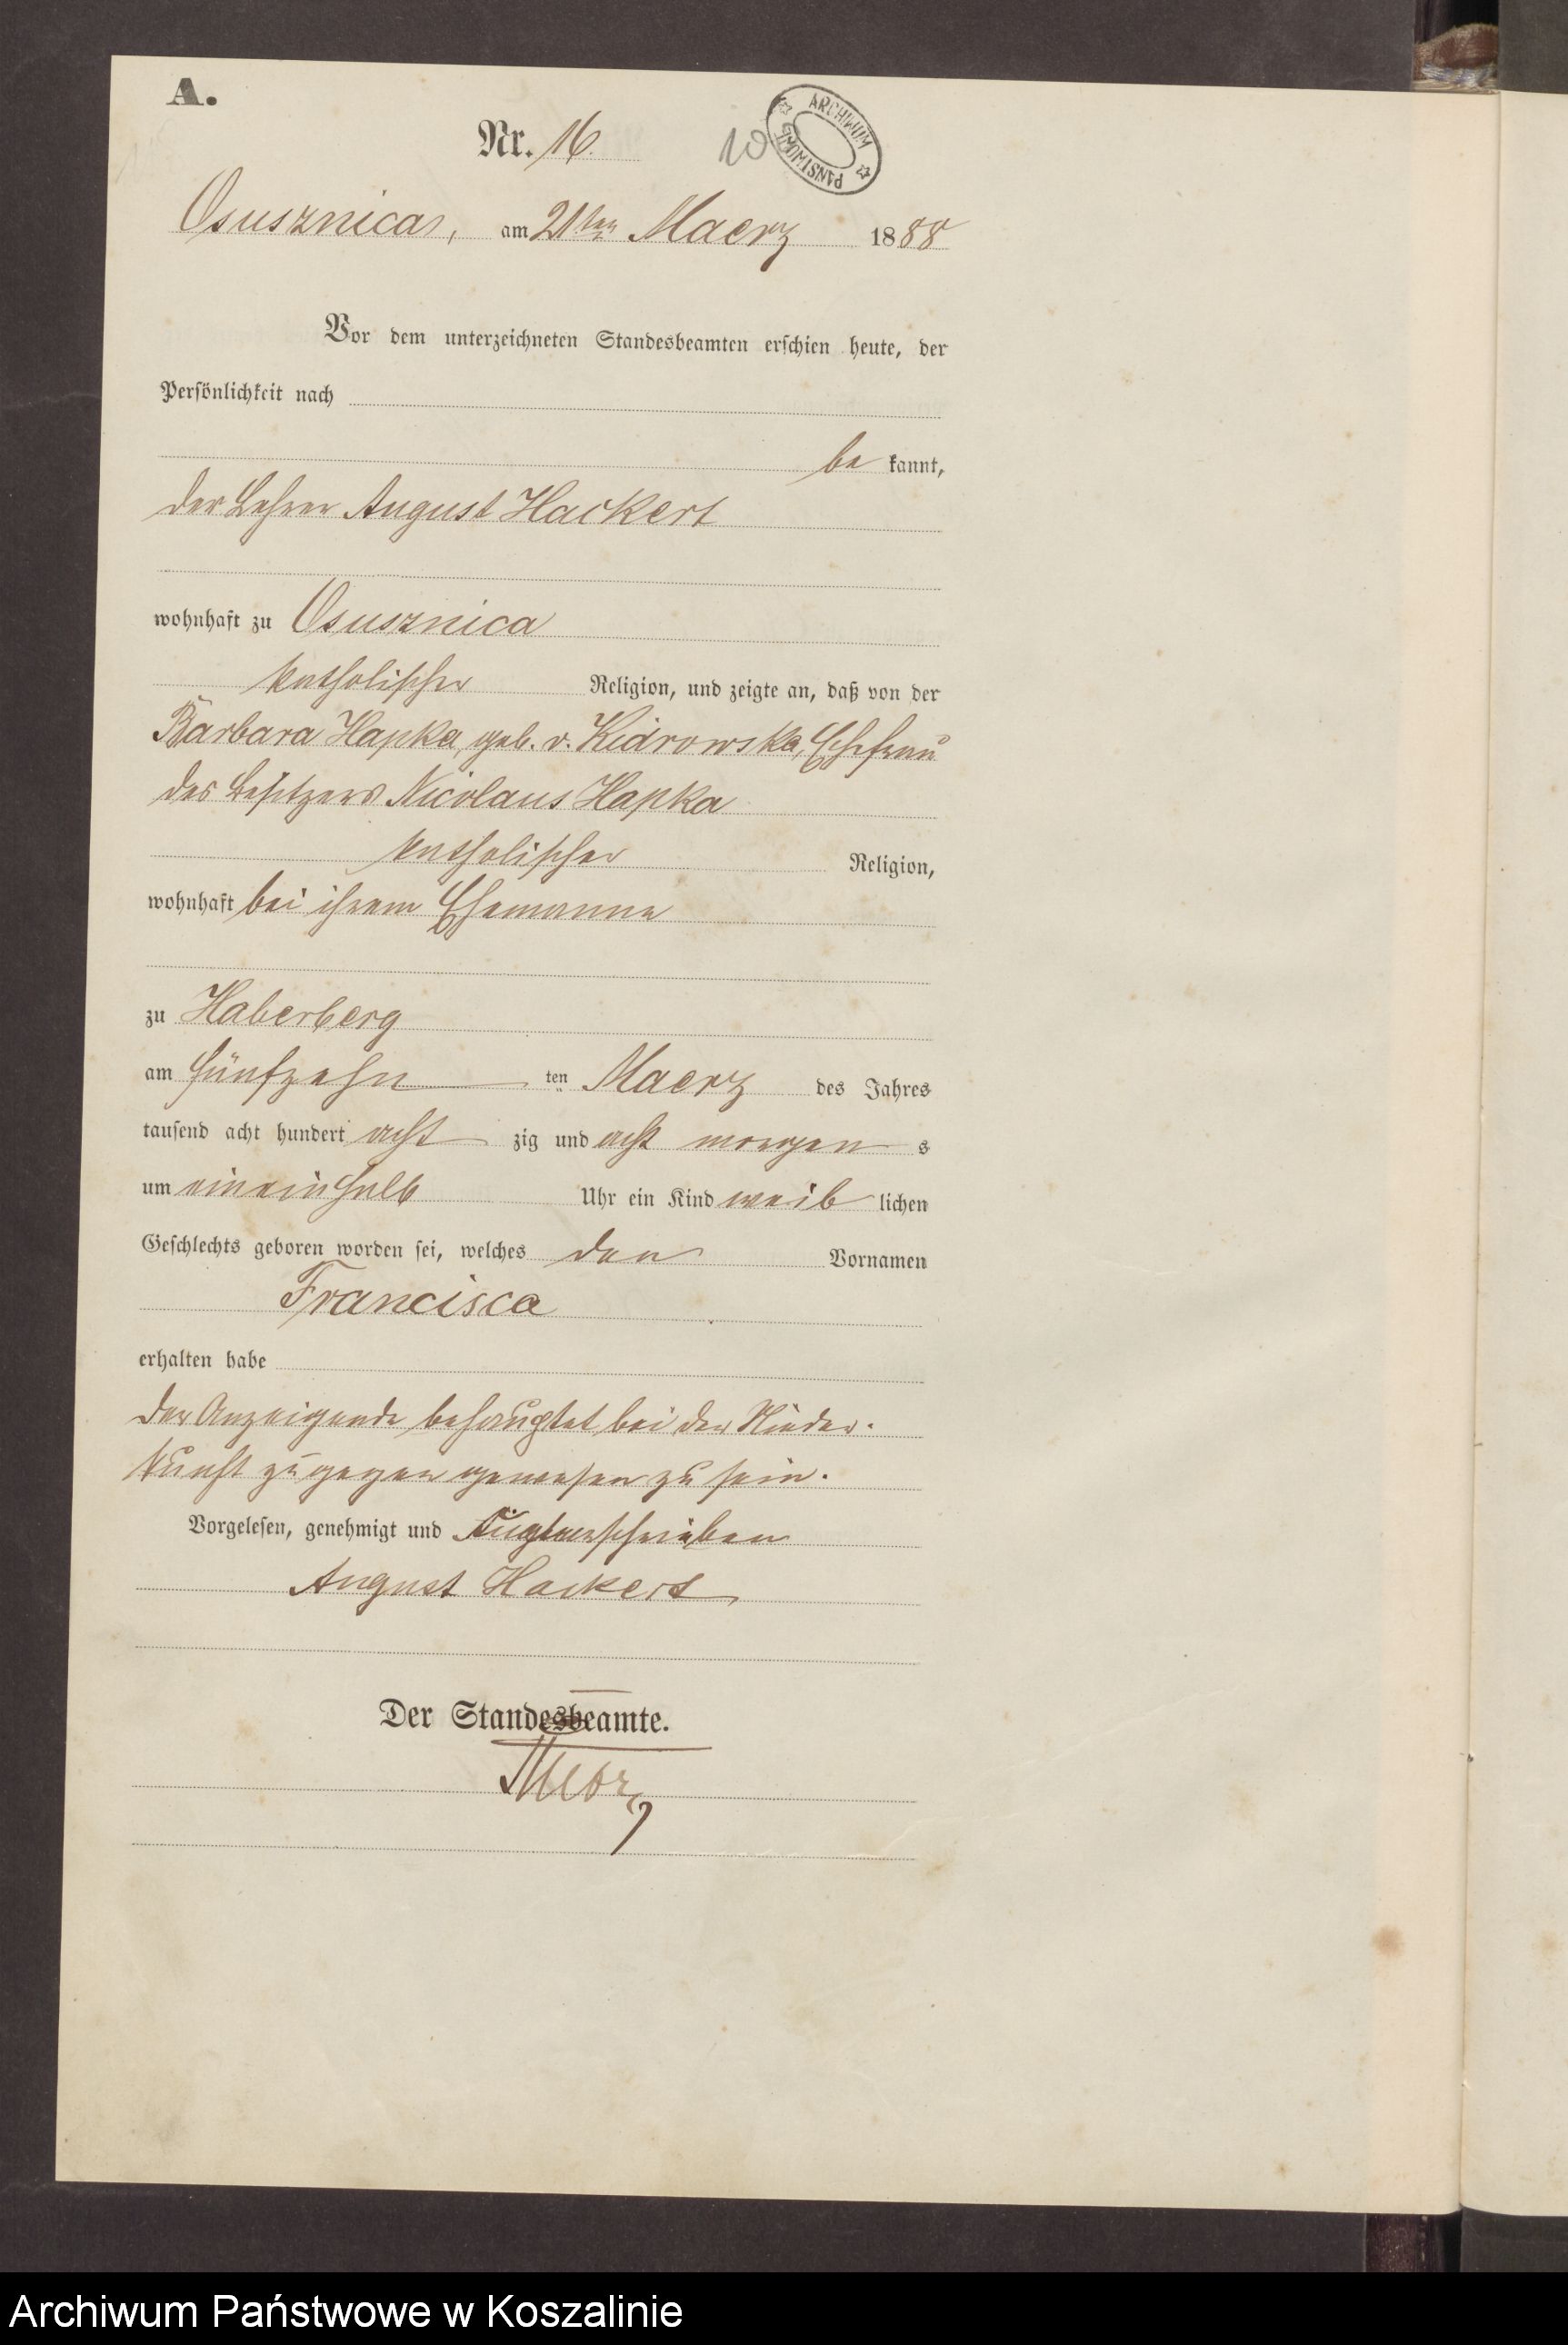 A.
Nr. 16.
10
ARCHIWUM PAŃSTWOWE
Osusznica, am 21ten Maerz 1888
Vor dem unterzeichneten Standesbeamten erschien heute, der
Persönlichkeit nach
be kannt,
der Lehrer August Hackert
wohnhaft zu Osusznica
katholischer Religion, und zeigte an, daß von der
Barbara Hapka, geb. v. Kidrowska, Ehefrau
des Besitzers Nicolaus Hapka
katholischer Religion,
wohnhaft bei ihrem Ehemanne
zu Haberberg
am fünfzehn ten Maerz des Jahres
tausend acht hundert acht zig und acht morgen s
um ein einhalb Uhr ein Kind weib lichen
Geschlechts geboren worden sei, welches den Vornamen
Francisca
erhalten habe
Der Anzeigende behauptet bei der Nieder-
kunft zugegen gewesen zu sein.
Vorgelesen, genehmigt und unterschrieben
August Hackert
Der Standesbeamte.
Archiwum Państwowe w Koszalinie